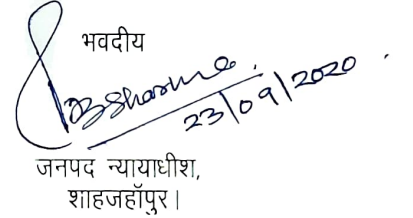 भवदीय
23/09/2020
जनपद न्यायाधीश,
शाहजहाँपुर।